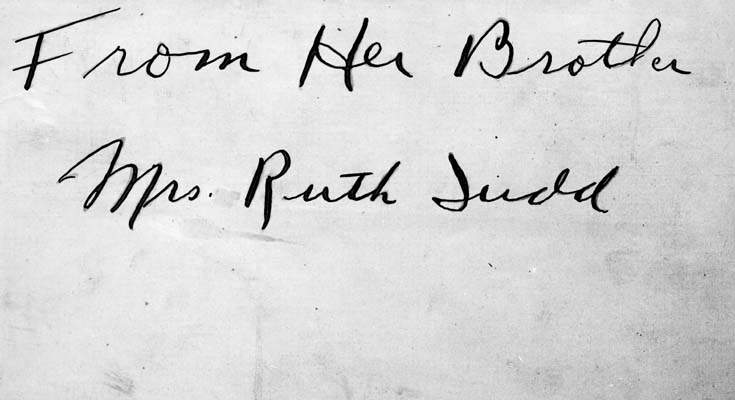 From Her Brother
Mrs. Ruth Judd